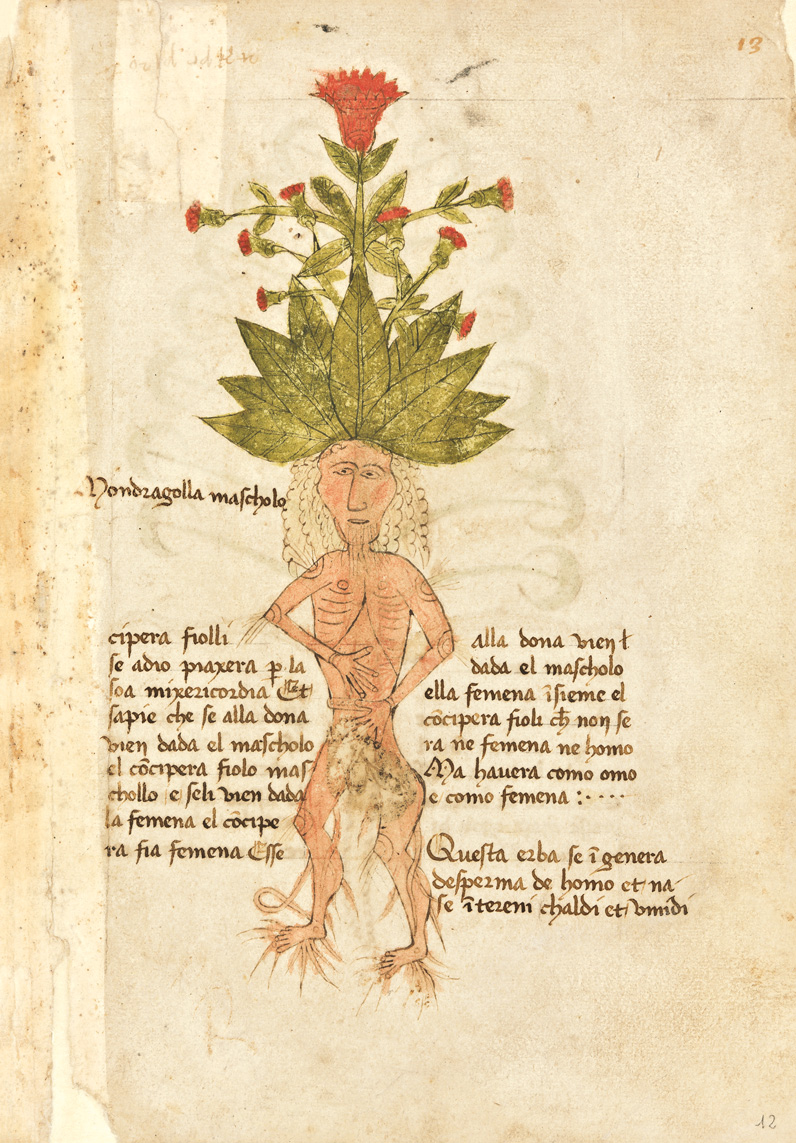 13
Mondragolla mascholo
cipera fiolli
se adio piaxera p̱ la
soa mixericordia Et
sapie che se alla dona
vien dada el mascholo
el cõcipera fiolo mas
chollo e seli vien dada
la femena el cõcipe
ra fia femena Esse
alla dona vien ł
dada el mascholo
ella femena ĩsieme el
cõcipera fioli cħ non se
ra ne femena ne homo
Ma havera como omo
e como femena :····
Questa erba se ĩ genera
desperma de homo et na-
se ĩ tereni chaldi et vmidi
12